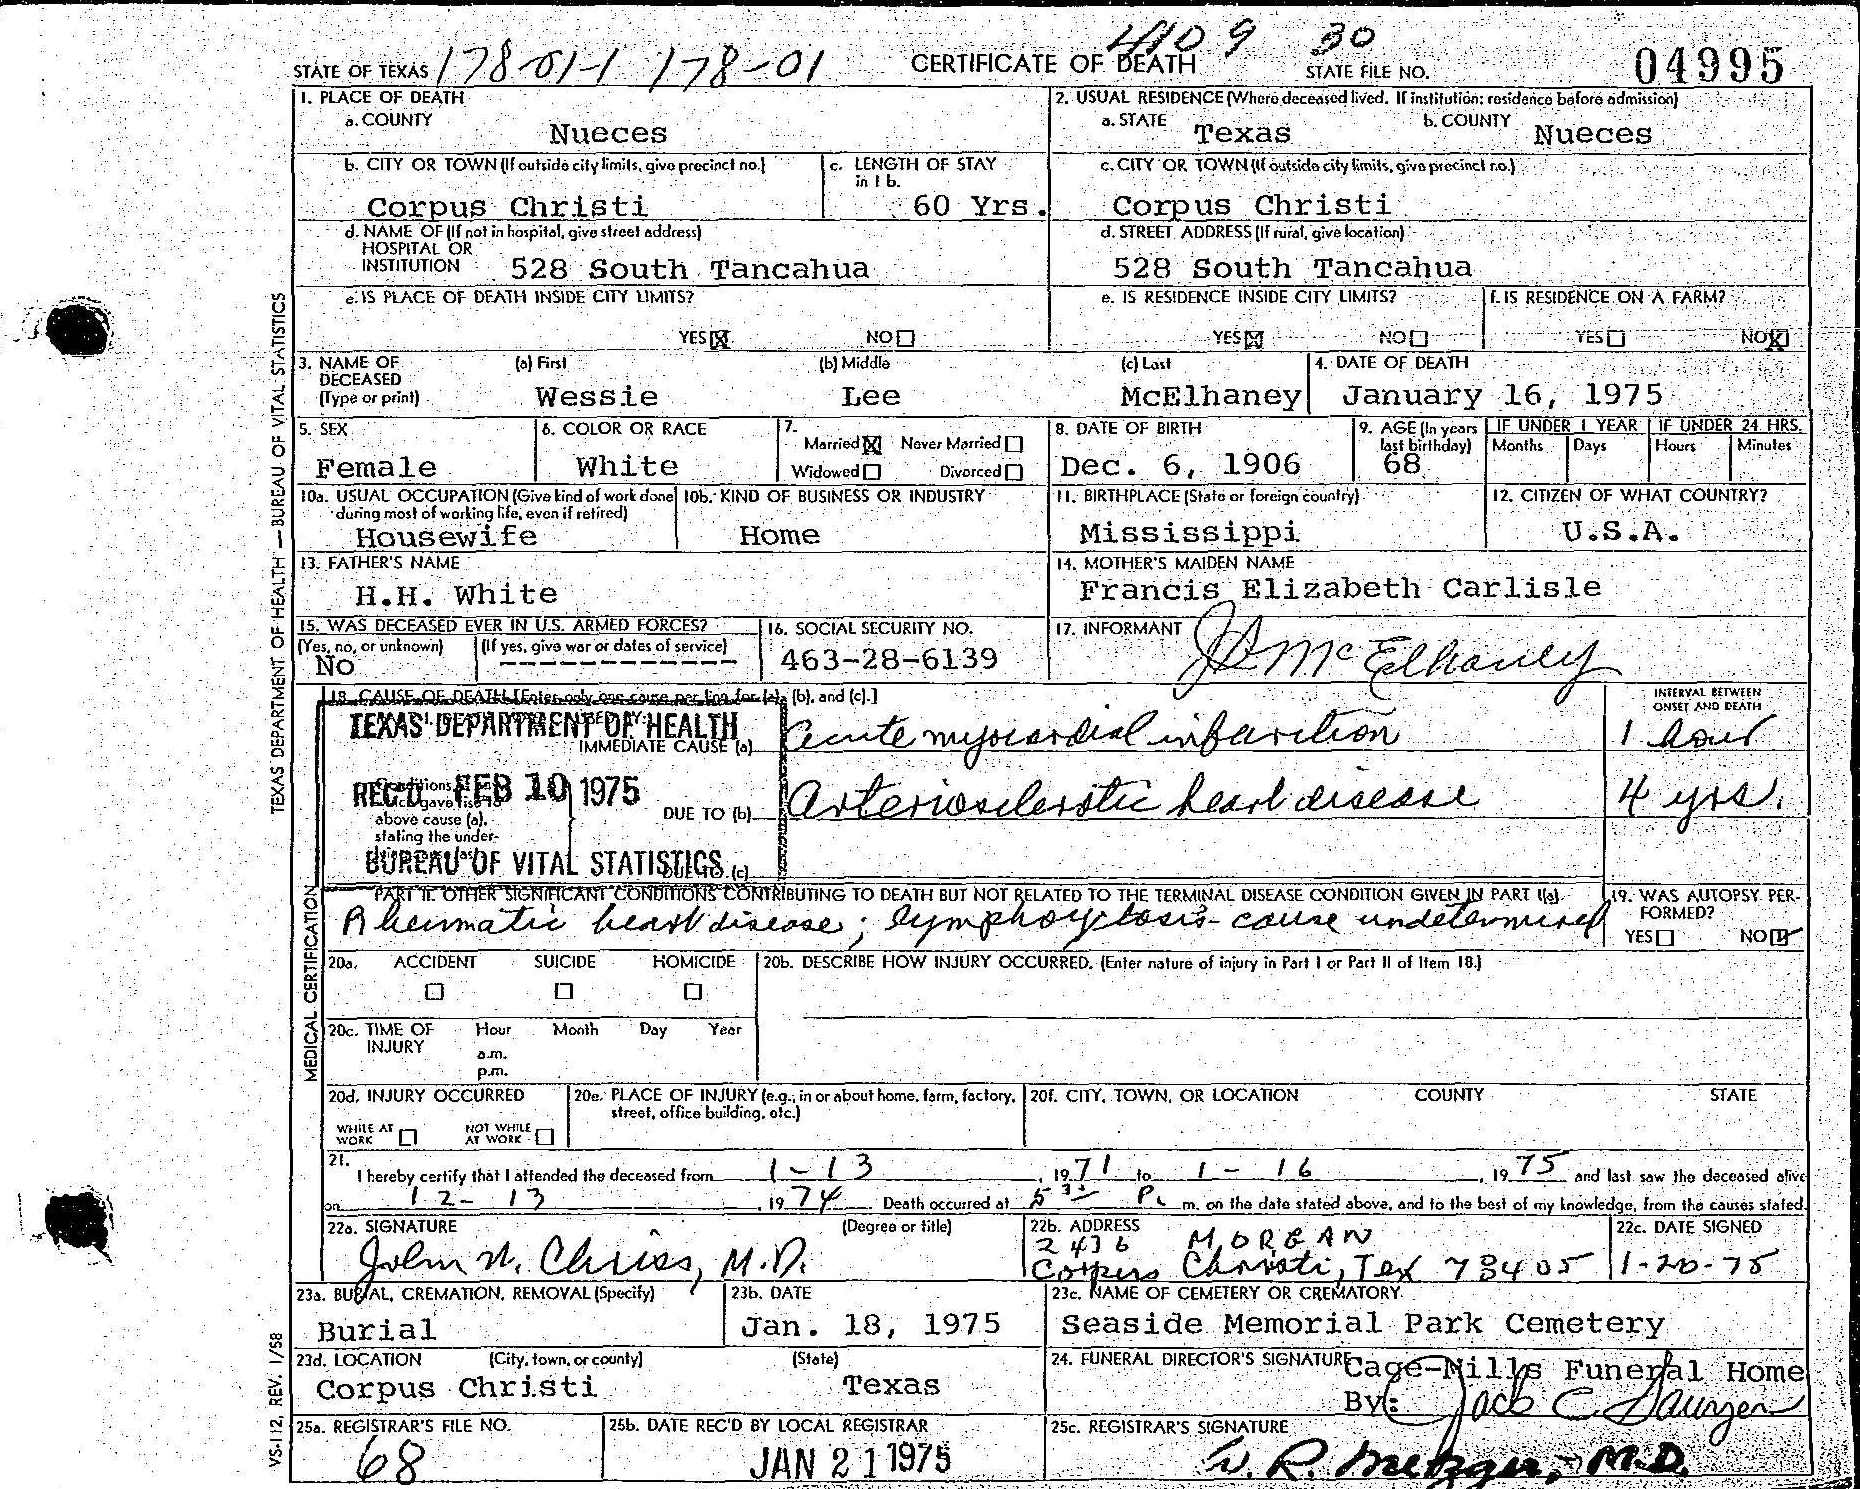 STATE OF TEXAS 178-01-1 178-01 CERTIFICATE OF DEATH 4109 30 STATE FILE NO. 04995
1. PLACE OF DEATH
a. COUNTY
Nueces
2. USUAL RESIDENCE (Where deceased lived. If institution: residence before admission)
a. STATE b. COUNTY
Texas Nueces
b. CITY OR TOWN (If outside city limits, give precinct no.)
Corpus Christi
c. LENGTH OF STAY
in 1 b.
60 Yrs.
c. CITY OR TOWN (If outside city limits, give precinct no.)
Corpus Christi
d. NAME OF (If not in hospital, give street address)
HOSPITAL OR
INSTITUTION 528 South Tancahua
d. STREET ADDRESS (If rural, give location)
528 South Tancahua
e. IS PLACE OF DEATH INSIDE CITY LIMITS?
YES NO
e. IS RESIDENCE INSIDE CITY LIMITS?
YES NO
f. IS RESIDENCE ON A FARM?
YES NO
3. NAME OF
DECEASED
(Type or print)
(a) First (b) Middle (c) Last
Wessie Lee McElhaney
4. DATE OF DEATH
January 16, 1975
5. SEX
Female
6. COLOR OR RACE
White
7.
Married Never Married
Widowed Divorced
8. DATE OF BIRTH
Dec. 6, 1906
9. AGE (In years
last birthday)
68
IF UNDER 1 YEAR
Months Days
IF UNDER 24 HRS.
Hours Minutes
10a. USUAL OCCUPATION (Give kind of work done
during most of working life, even if retired)
Housewife
10b. KIND OF BUSINESS OR INDUSTRY
Home
11. BIRTHPLACE (State or foreign country)
Mississippi
12. CITIZEN OF WHAT COUNTRY?
U.S.A.
13. FATHER'S NAME
H.H. White
14. MOTHER'S MAIDEN NAME
Francis Elizabeth Carlisle
15. WAS DECEASED EVER IN U.S. ARMED FORCES?
(Yes, no, or unknown) (If yes, give war or dates of service)
No --------------
16. SOCIAL SECURITY NO.
463-28-6139
17. INFORMANT
McElhaney
18. CAUSE OF DEATH [Enter only one cause per line for (a), (b), and (c).]
INTERVAL BETWEEN
ONSET AND DEATH
TEXAS DEPARTMENT OF HEALTH
IMMEDIATE CAUSE (a) Acute myocardial infarction 1 hour
REC'D FEB 10 1975
above cause (a),
stating the under-
DUE TO (b) Arteriosclerotic heart disease 4 yrs.
BUREAU OF VITAL STATISTICS
(c)
PART II. OTHER SIGNIFICANT CONDITIONS CONTRIBUTING TO DEATH BUT NOT RELATED TO THE TERMINAL DISEASE CONDITION GIVEN IN PART I(a).
Rheumatic heart disease; lymphocytosis - cause undetermined
19. WAS AUTOPSY PER-
FORMED?
YES NO
20a. ACCIDENT SUICIDE HOMICIDE
20b. DESCRIBE HOW INJURY OCCURRED. (Enter nature of injury in Part I or Part II of Item 18.)
20c. TIME OF
INJURY
Hour Month Day Year
a.m.
p.m.
20d. INJURY OCCURRED
WHILE AT
WORK
NOT WHILE
AT WORK
20e. PLACE OF INJURY (e.g., in or about home, farm, factory,
street, office building, etc.)
20f. CITY, TOWN, OR LOCATION COUNTY STATE
21.
I hereby certify that I attended the deceased from 1-13, 1971 to 1-16, 1975 and last saw the deceased alive
on 12-13, 1974 Death occurred at 5 30 P. m. on the date stated above, and to the best of my knowledge, from the causes stated.
22a. SIGNATURE (Degree or title)
John N. Chriss, M.D.
22b. ADDRESS
2436 MORGAN
Corpus Christi, Tex 78405
22c. DATE SIGNED
1-20-75
23a. BURIAL, CREMATION, REMOVAL (Specify)
Burial
23b. DATE
Jan. 18, 1975
23c. NAME OF CEMETERY OR CREMATORY
Seaside Memorial Park Cemetery
23d. LOCATION (City, town, or county) (State)
Corpus Christi Texas
24. FUNERAL DIRECTOR'S SIGNATURE
Cage-Mills Funeral Home
By: Jack C
25a. REGISTRAR'S FILE NO.
68
25b. DATE REC'D BY LOCAL REGISTRAR
JAN 21 1975
25c. REGISTRAR'S SIGNATURE
W. R. Metzger, M.D.
TEXAS DEPARTMENT OF HEALTH — BUREAU OF VITAL STATISTICS
MEDICAL CERTIFICATION
VS-112, REV. 1/58